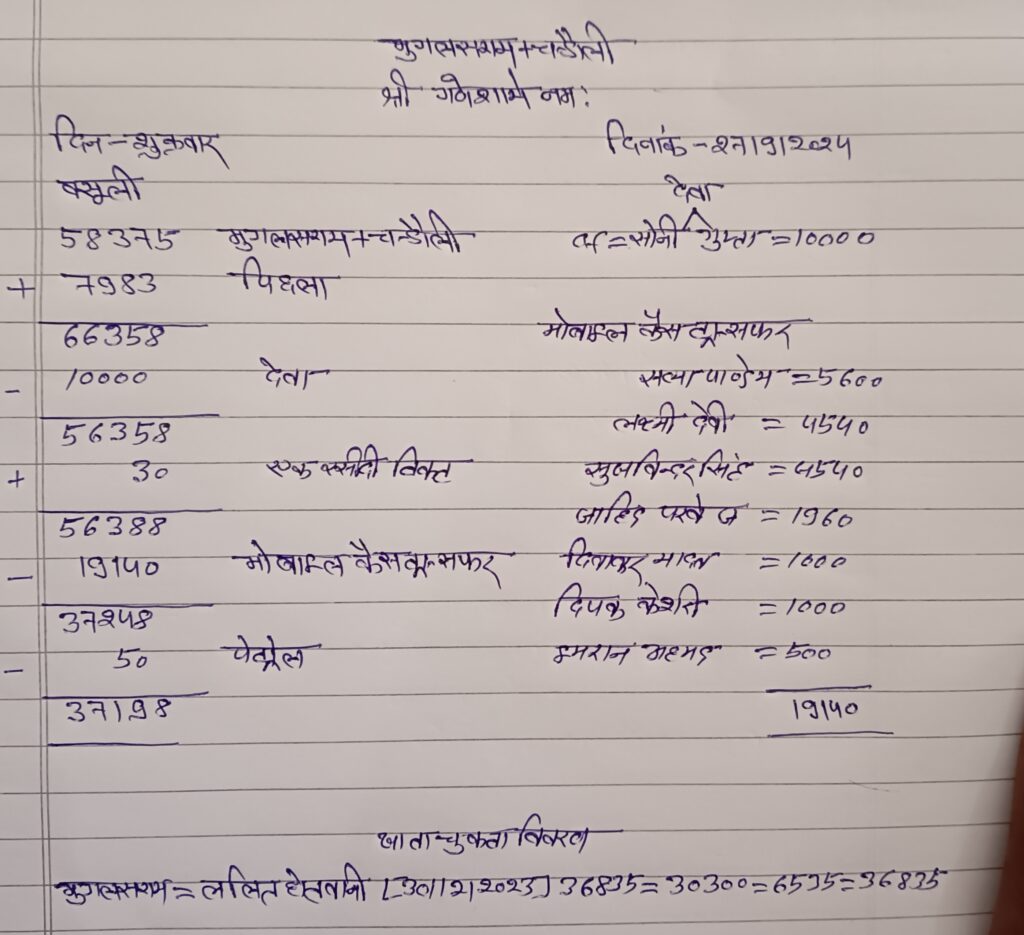 मुगलसराय+चन्दौली
श्री गणेशाये नम:
दिन-शुक्रवार दिनांक-27/9/2024
वसूली देवा
58375 मुगलसराय+चन्दौली =सोनी गुप्ता=10000
+ 7983 पिछला
66358 मोबाइल कैस ट्रान्सफर
- 10000 देवा सत्या पाण्डेय =5600
56358 लक्ष्मी देवी = 4540
+ 30 एक रसीदी टिकट सुखविन्दर सिंह = 4540
56388 जाहिद परवेज = 1960
- 19140 मोबाइल कैस ट्रान्सफर दिवाकर यादव =1000
37248 दिपक केशरी =1000
- 50 पेट्रोल इमरान अहमद =500
37198 19140
खाता चुकता विवरण
मुगलसराय= ललित [30/12/2023] 36835=30300=6535=36835